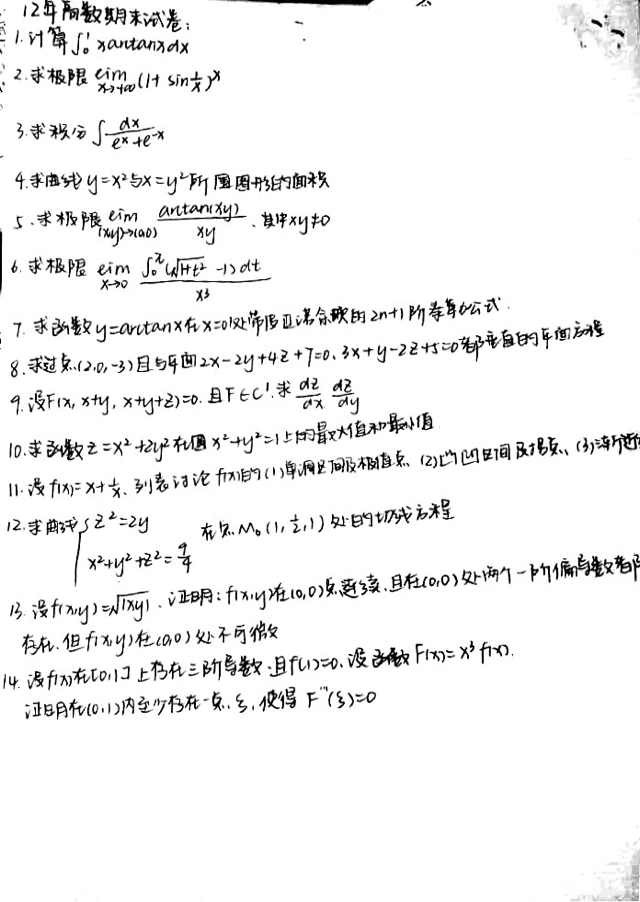 12年高数期末试卷:
1.计算∫₀¹xarctanxdx
2.求极限 lim x→+∞ (1+ sin 1/x)^x
3.求积分∫ dx/(e^x+e^-x)
4.求曲线y=x²与x=y²所围图形的面积
5.求极限 lim (x,y)→(0,0) arctan(xy)/xy ,其中xy≠0
6.求极限 lim x→0 ∫₀^x(√1+t² -1)dt / x³
7.求函数y=arctanx在x=0处带佩亚诺余项的2n+1阶泰勒公式.
8.求过点(2,0,-3)且与平面2x-2y+4z+7=0、3x+y-2z+5=0都垂直的平面方程
9.设F(x, x+y, x+y+z)=0.且F∈C¹.求 dz/dx dz/dy
10.求函数z=x²+2y²在圆x²+y²=1上的最大值和最小值
11.设f(x)=x+1/x、列表讨论f(x)的(1)单调区间及极值点、(2)凹凸区间及拐点、(3)渐近
12.求曲线{z²=2y
x²+y²+z²=9/4 在点M₀(1,1/2,1)处的切线方程
13.设f(x,y)=√|xy|、证明:f(x,y)在(0,0)点连续、且在(0,0)处两个一阶偏导数都
存在,但f(x,y)在(0,0)处不可微
14.设f(x)在[0,1]上存在三阶导数,且f(1)=0.设函数F(x)=x³f(x).
证明在(0,1)内至少存在一点ξ,使得F'''(ξ)=0